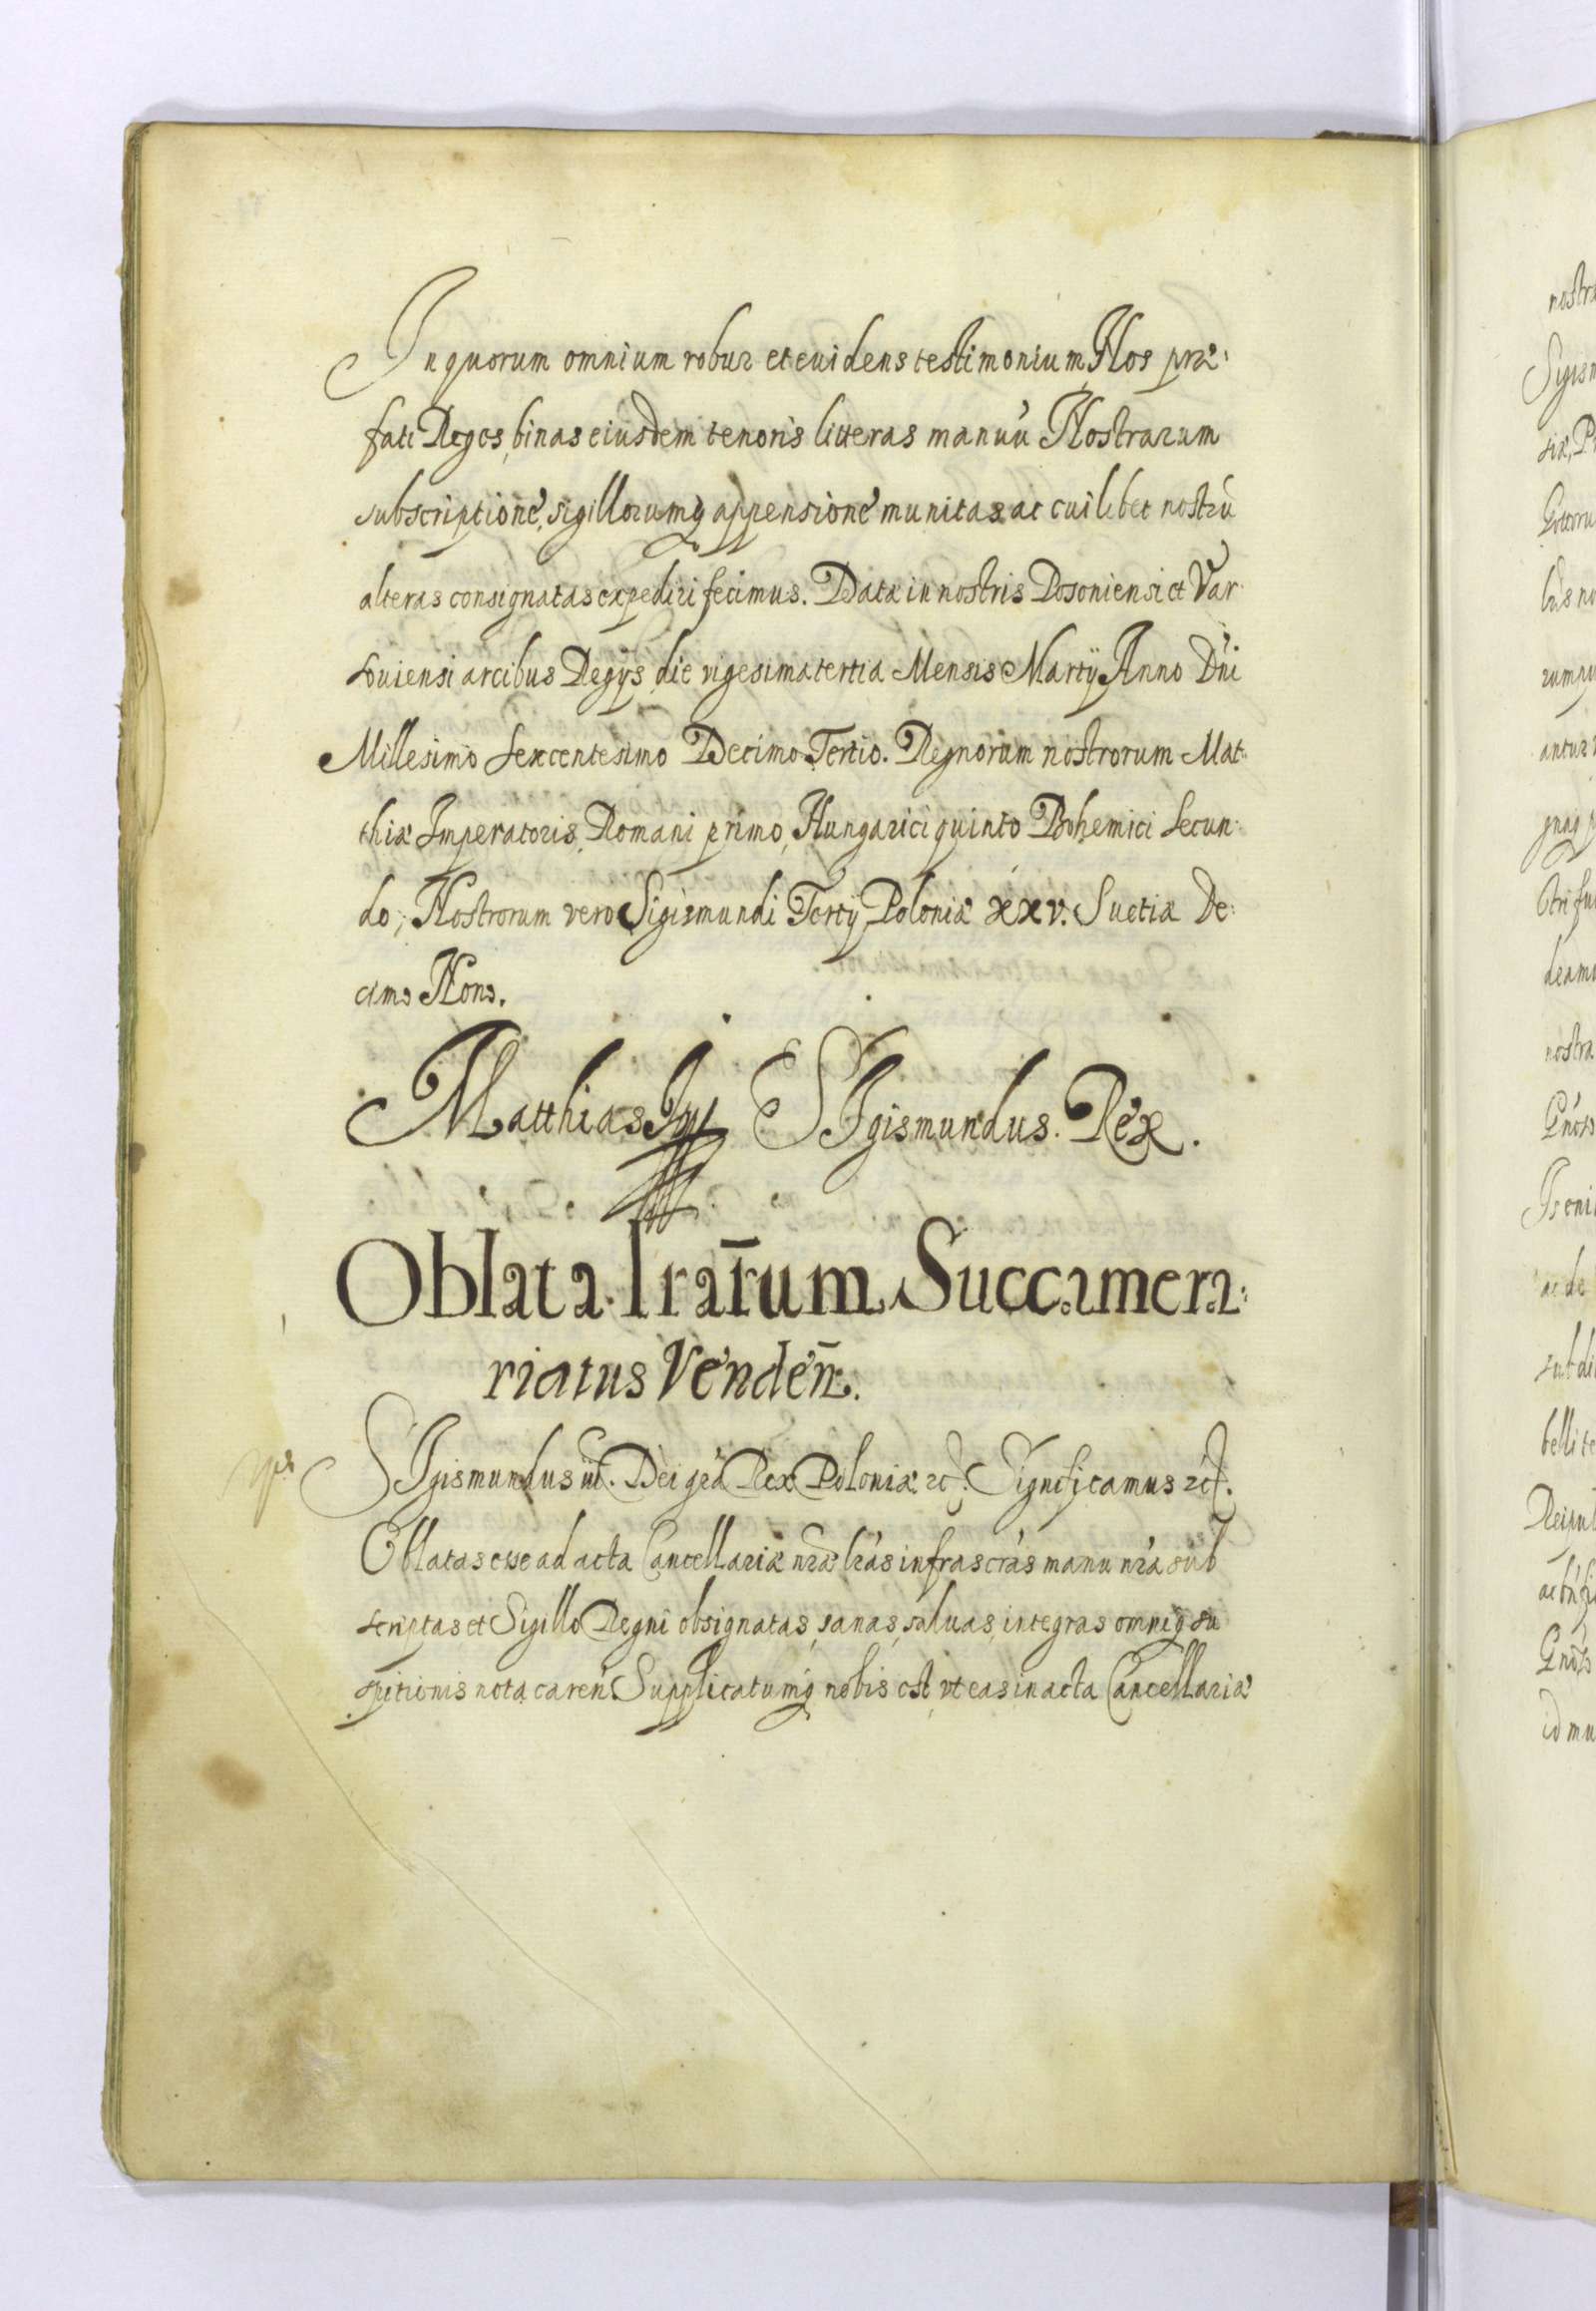 In quorum omnium robur et euidens testimonium, Nos præ:
fati Reges, binas eiusdem tenoris litteras manuũ Nostrarum
subscriptione, sigillorumq appensione munitas ac cuilibet nostrũ
alteras consignatas expediri fecimus. Data in nostris Posoniensi et Var:
souiensi arcibus Regijs die vigesima tertia Mensis Martij Anno Dni
Millesimo Sexcentesimo Decimo Tertio. Regnorum nostrorum Mat:
thiæ Imperatoris, Romani primo, Hungarici quinto Bohemici Secun:
do; Nostrorum vero Sigismundi Tertij Poloniæ xxv. Suetiæ De:
cimo Nono.
Matthias SIgismundus. Rex.
Oblata lrarum Succamera:
riatus Venden.
SIgismundus iii. Dei gra Rex Poloniæ etc. Significamus etc.
Oblatas esse ad acta Cancellariæ nræ lras infrascras manu nra sub
scriptas et Sigillo Regni obsignatas, sanas, saluas, integras omniq su
spitionis nota caren. Supplicatumq nobis est, vt eas in acta Cancellariæ
nostra
Sigism
siæ, P
antur
deamu
nostra
bellite
id mu